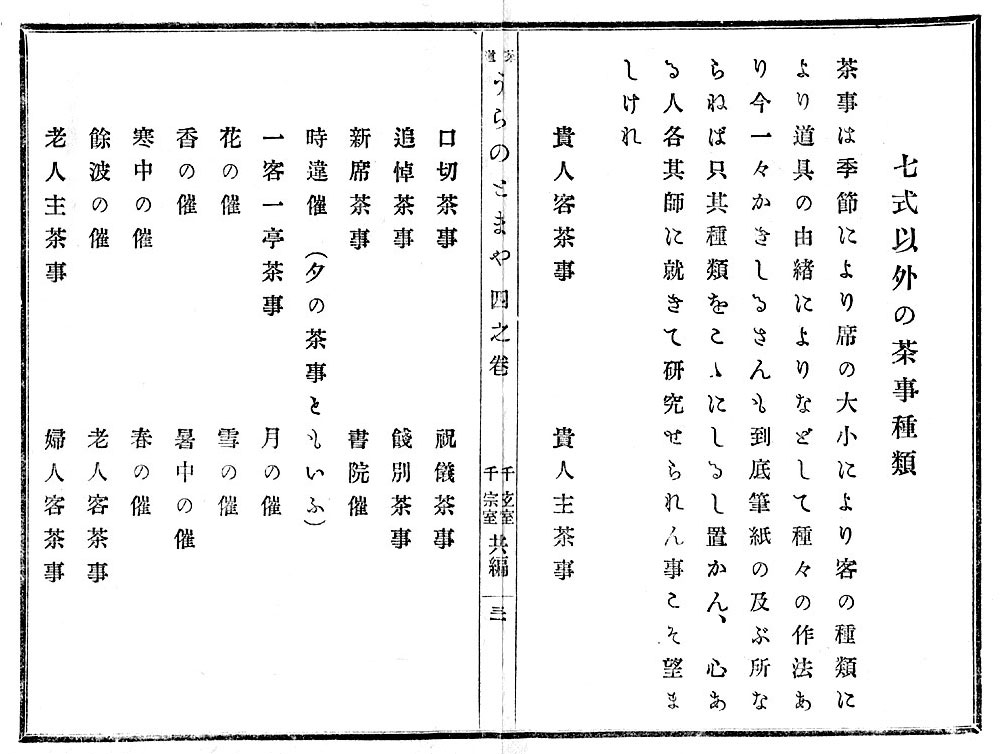 七式以外の茶事種類
茶事は季節により席の大小により客の種類に
より道具の由緒によりなどして種々の作法あ
り今一々かきしるさんも到底筆紙の及ぶ所な
らねば只其種類をこゝにしるし置かん、心あ
る人各其師に就きて研究せられん事こそ望ま
しけれ
貴人客茶事 貴人主茶事
茶道 うらのとまや 四之巻 千玄室 千宗室 共編 三
口切茶事 祝儀茶事
追悼茶事 餞別茶事
新席茶事 書院催
時違催 (夕の茶事ともいふ)
一客一亭茶事 月の催
花の催 雪の催
香の催 暑中の催
寒中の催 春の催
餘波の催 老人客茶事
老人主茶事 婦人客茶事